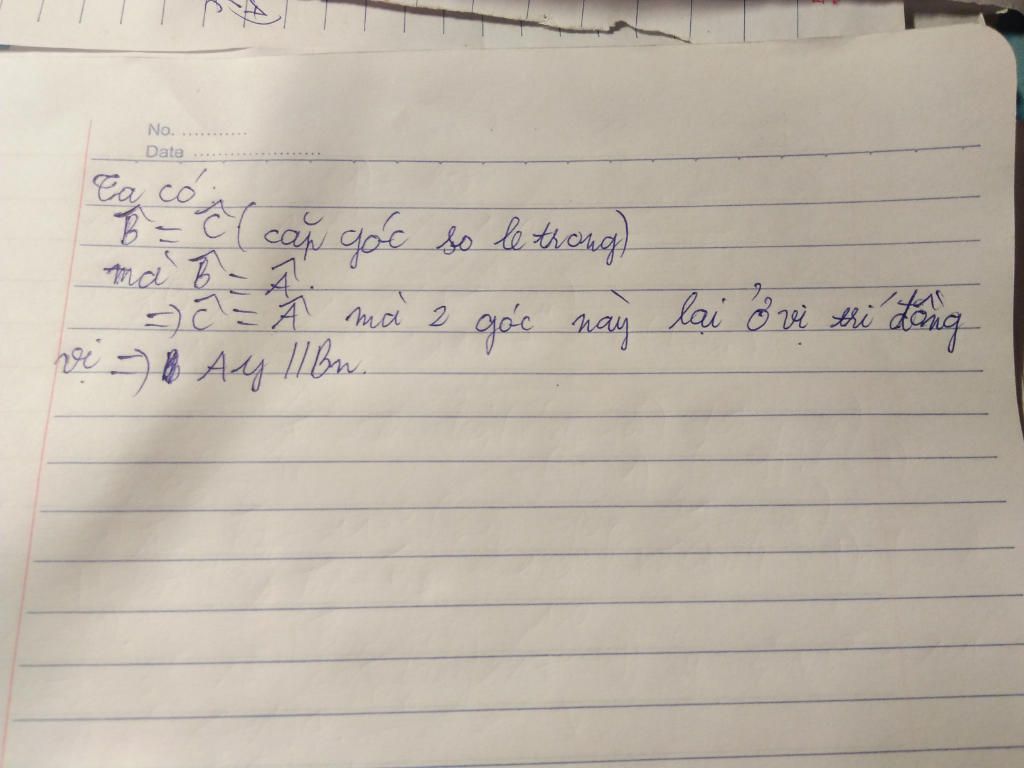 No. ...........
Date .....................
Ta có:
B̂ = Ĉ ( cặp góc so le trong)
mà B̂ = Â.
=) Ĉ = Â mà 2 góc này lại ở vị trí đồng
vị =) Ay // Bn.